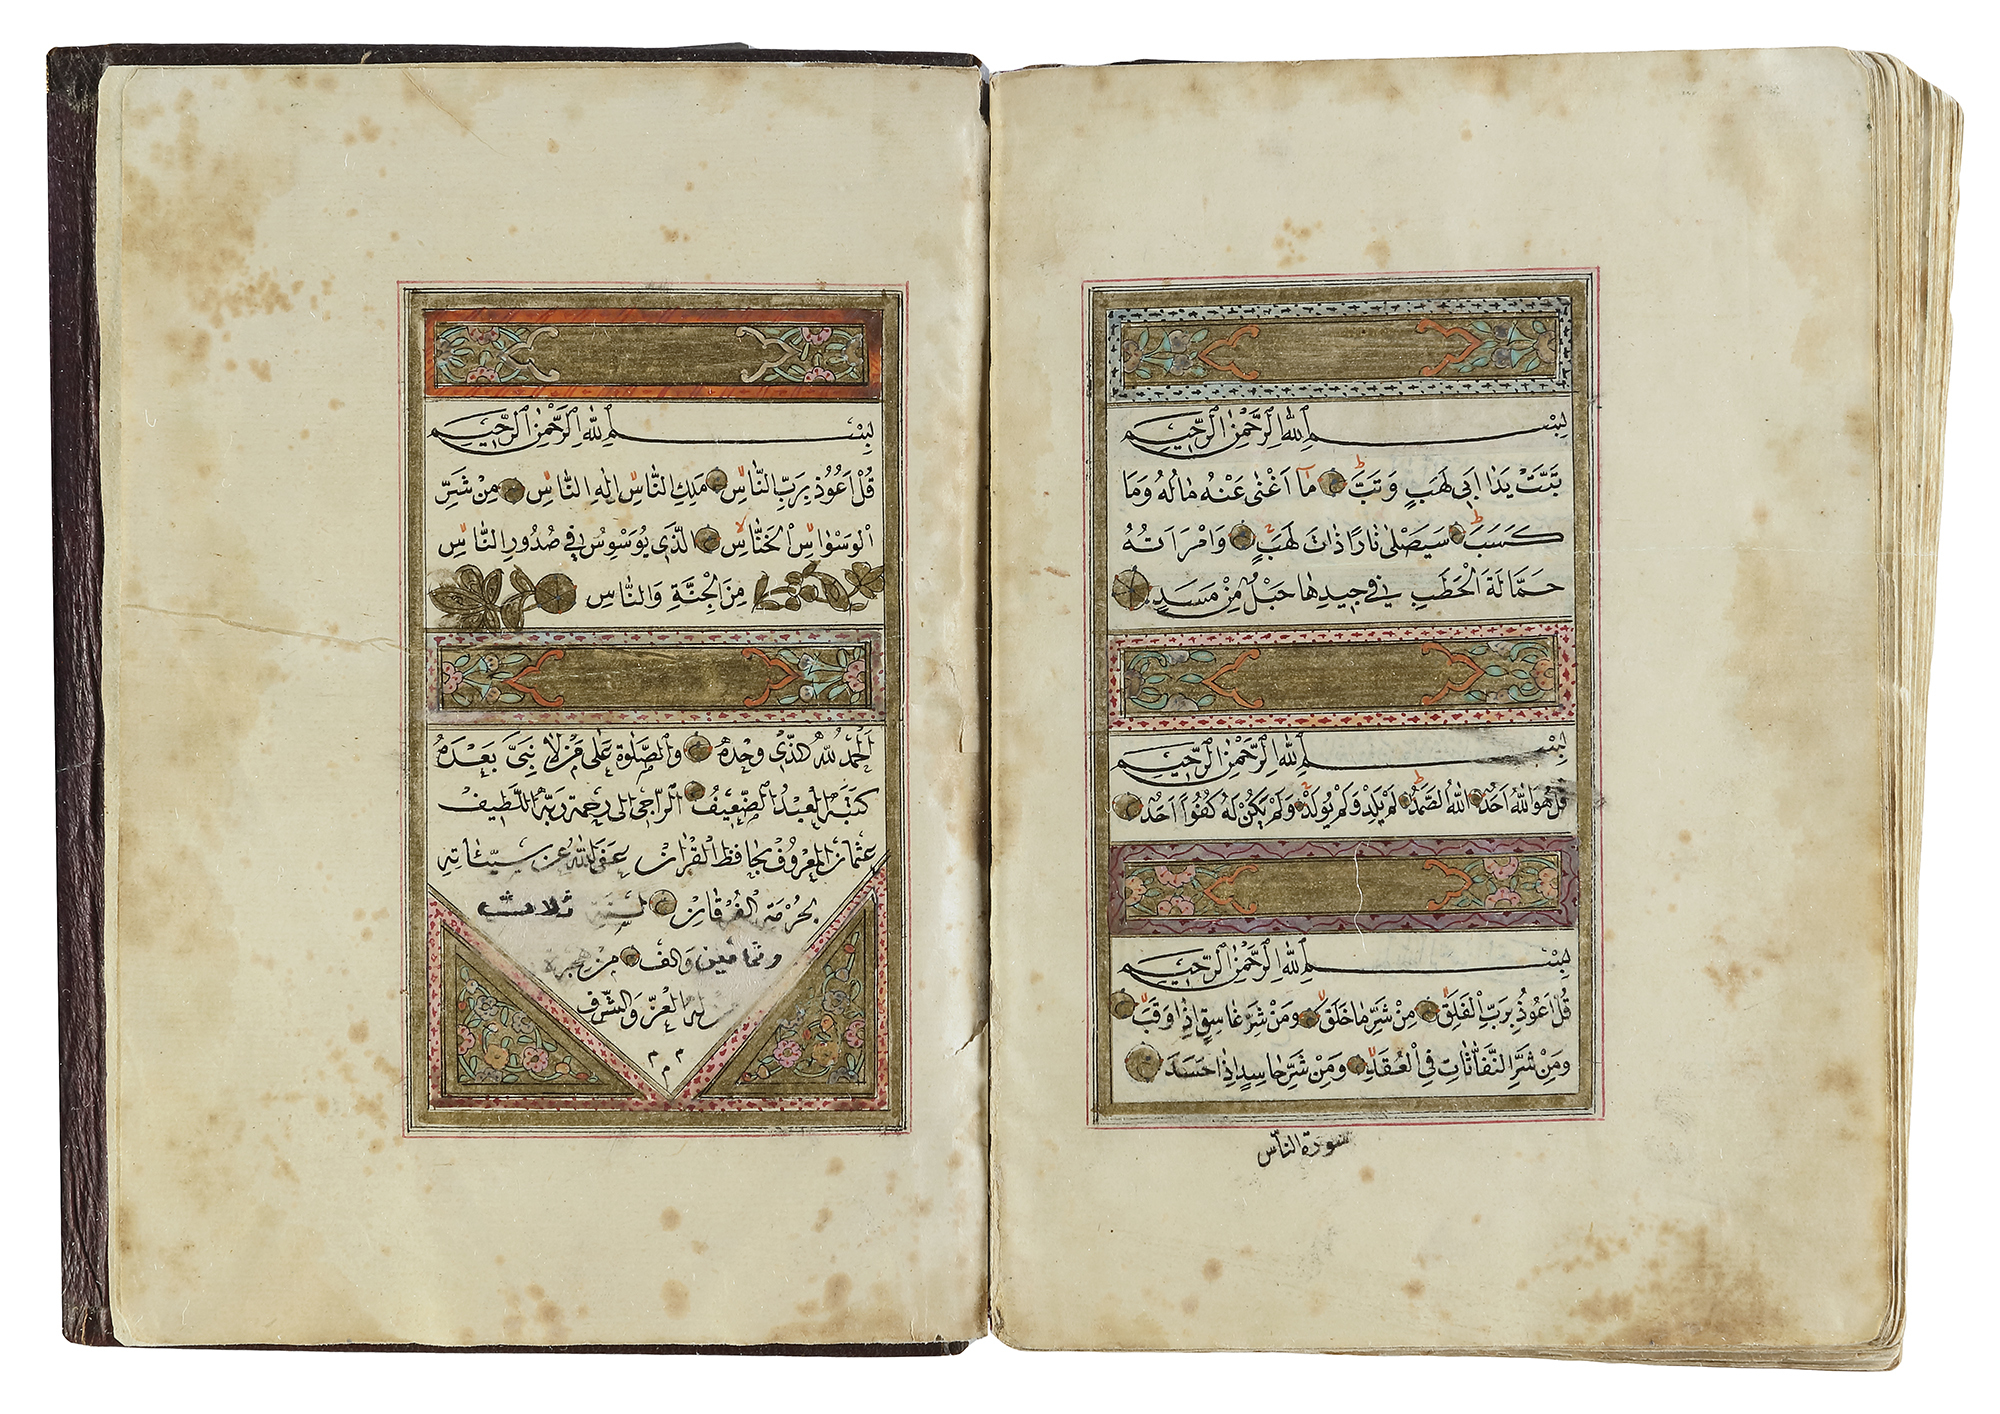 بِسْمِ اللّٰهِ الرَّحْمٰنِ الرَّحِيمِ
تَبَّتْ يَدَا اَبِي لَهَبٍ وَتَبَّ مَا اَغْنٰى عَنْهُ مَالُهُ وَمَا
كَسَبَ سَيَصْلٰى نَارًا ذَاتَ لَهَبٍ وَامْرَاَتُهُ
حَمَّالَةَ الْحَطَبِ فِي جِيدِهَا حَبْلٌ مِنْ مَسَدٍ
بِسْمِ اللّٰهِ الرَّحْمٰنِ الرَّحِيمِ
قُلْ هُوَ اللّٰهُ اَحَدٌ اَللّٰهُ الصَّمَدُ لَمْ يَلِدْ وَلَمْ يُولَدْ وَلَمْ يَكُنْ لَهُ كُفُوًا اَحَدٌ
بِسْمِ اللّٰهِ الرَّحْمٰنِ الرَّحِيمِ
قُلْ اَعُوذُ بِرَبِّ الْفَلَقِ مِنْ شَرِّ مَا خَلَقَ وَمِنْ شَرِّ غَاسِقٍ اِذَا وَقَبَ
وَمِنْ شَرِّ النَّفَّاثَاتِ فِي الْعُقَدِ وَمِنْ شَرِّ حَاسِدٍ اِذَا حَسَدَ
سورة الناس
بِسْمِ اللّٰهِ الرَّحْمٰنِ الرَّحِيمِ
قُلْ اَعُوذُ بِرَبِّ النَّاسِ مَلِكِ النَّاسِ اِلٰهِ النَّاسِ مِنْ شَرِّ
الْوَسْوَاسِ الْخَنَّاسِ اَلَّذِي يُوَسْوِسُ فِي صُدُورِ النَّاسِ
مِنَ الْجِنَّةِ وَالنَّاسِ
اَلْحَمْدُ لِلّٰهِ الَّذِي وَحْدَهُ وَالصَّلٰوةُ عَلٰى مَنْ لَا نَبِيَّ بَعْدَهُ
كَتَبَهُ الْعَبْدُ الضَّعِيفُ الرَّاجِي اِلٰى رَحْمَةِ رَبِّهِ اللَّطِيفِ
عُثْمَانُ الْمَعْرُوفُ بِحَافِظِ الْقُرْاٰنِ عَفَى اللّٰهُ عَنْ سَيِّئَاتِهِ
بِحُرْمَةِ الْفُرْقَانِ لسنة ثلاث
وثمانين وَالف مِنْ هجرة
مَنْ لَهُ الْعِزُّ وَالشَّرَفُ
م م م